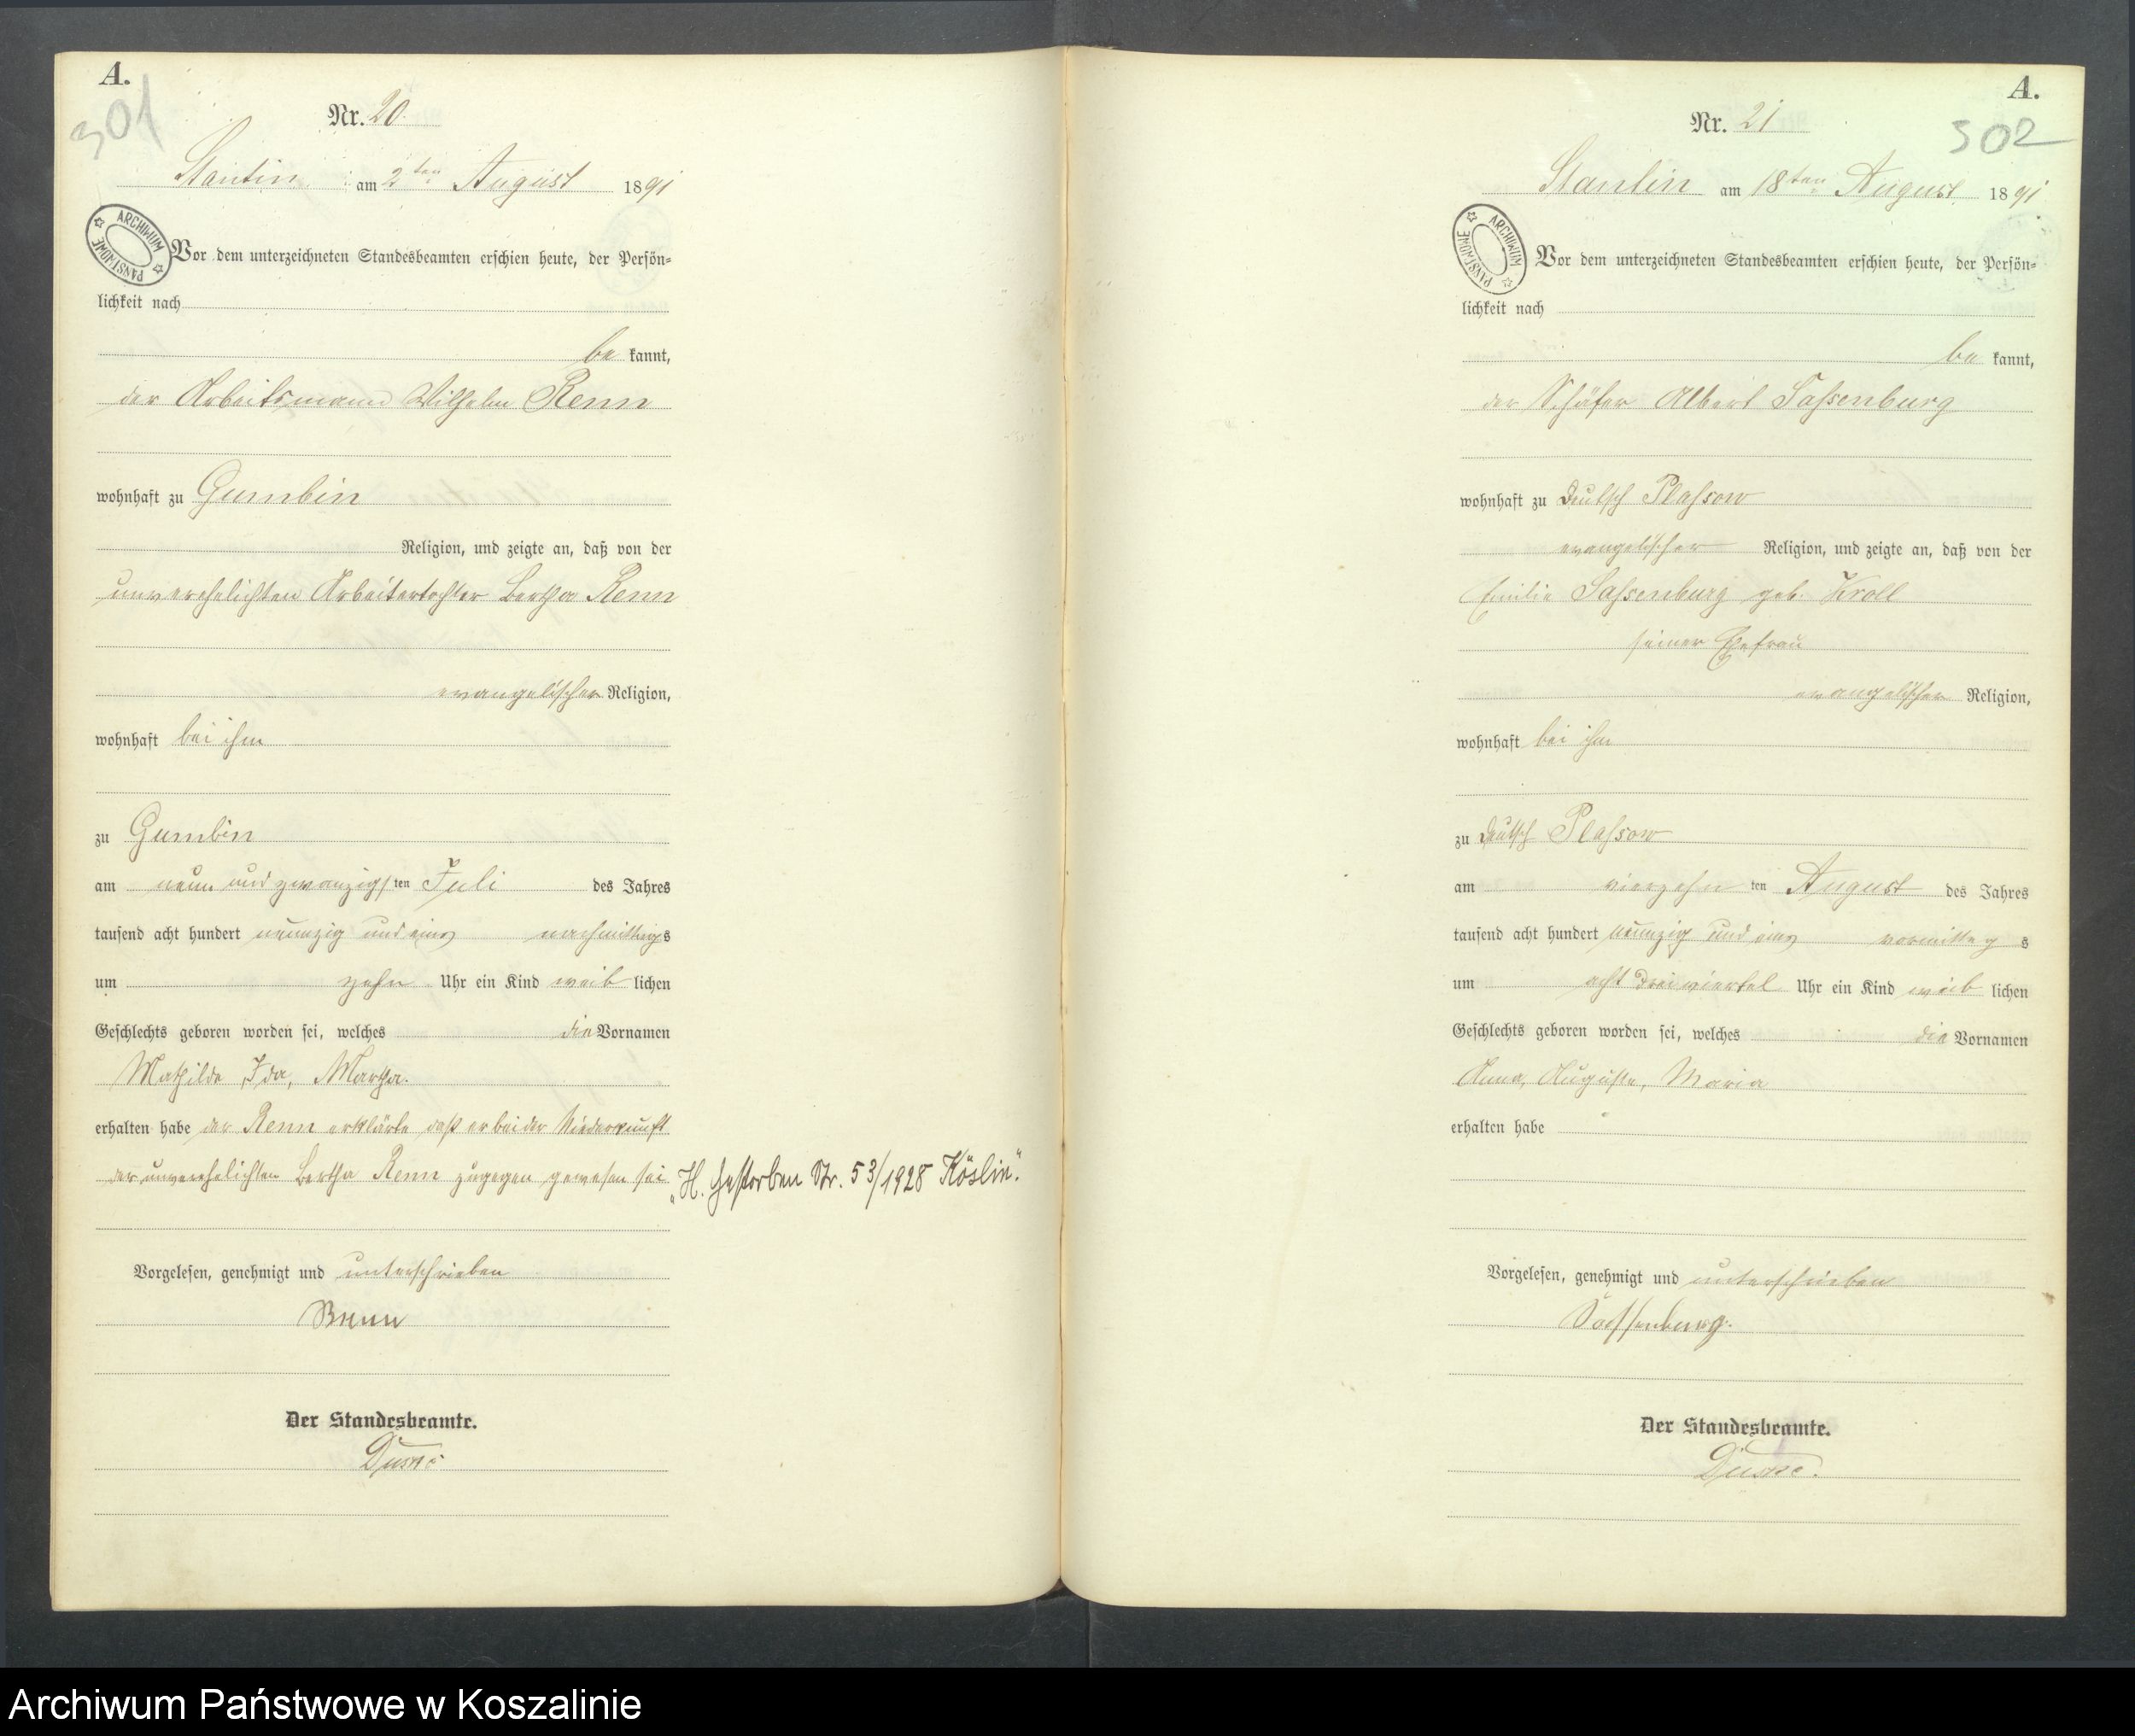 A.
301
Nr. 20.
Stantin am 2ten August 1891
ARCHIWUM PAŃSTWOWE
Vor dem unterzeichneten Standesbeamten erschien heute, der Persön-
lichkeit nach
be kannt,
der Arbeitsmann Wilhelm Renn
wohnhaft zu Gumbin
Religion, und zeigte an, daß von der
unverehelichten Arbeitertochter Bertha Renn
evangelischer Religion,
wohnhaft bei ihm
zu Gumbin
am neun und zwanzigsten Juli des Jahres
tausend acht hundert neunzig und eins nachmittags
um zehn Uhr ein Kind weiblichen
Geschlechts geboren worden sei, welches die Vornamen
Mathilde, Ida, Martha.
erhalten habe der Renn erklärte daß er bei der Niederkunft
der unverehelichten Bertha Renn zugegen gewesen sei
„H. Gestorben Nr. 53/1928 Köslin".
Vorgelesen, genehmigt und unterschrieben
Renn
Der Standesbeamte.
A.
302
Nr. 21
Stantin am 18ten August 1891
ARCHIWUM PAŃSTWOWE
Vor dem unterzeichneten Standesbeamten erschien heute, der Persön-
lichkeit nach
be kannt,
der Schäfer Albert Sassenburg
wohnhaft zu Deutsch Plassow
evangelischer Religion, und zeigte an, daß von der
Emilie Sassenburg geb. Kroll
seiner Ehefrau
evangelischer Religion,
wohnhaft bei ihm
zu Deutsch Plassow
am vierzehnten August des Jahres
tausend acht hundert neunzig und eins vormittags
um acht drei viertel Uhr ein Kind weiblichen
Geschlechts geboren worden sei, welches die Vornamen
Anna, Auguste, Maria
erhalten habe
Vorgelesen, genehmigt und unterschrieben
Sassenburg.
Der Standesbeamte.
Archiwum Państwowe w Koszalinie